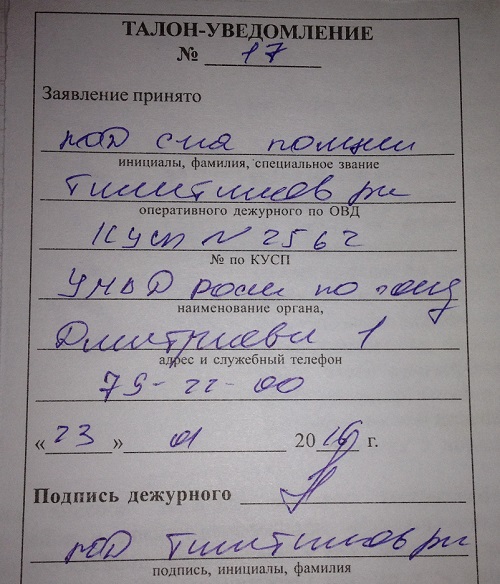 ТАЛОН-УВЕДОМЛЕНИЕ
№ 17
Заявление принято
инициалы, фамилия, специальное звание
оперативного дежурного по ОВД
КУСП N 2562
№ по КУСП
УМВД по
наименование органа,
Дмитриева 1
адрес и служебный телефон
79-22-00
« 23 » 01 2016 г.
Подпись дежурного
подпись, инициалы, фамилия